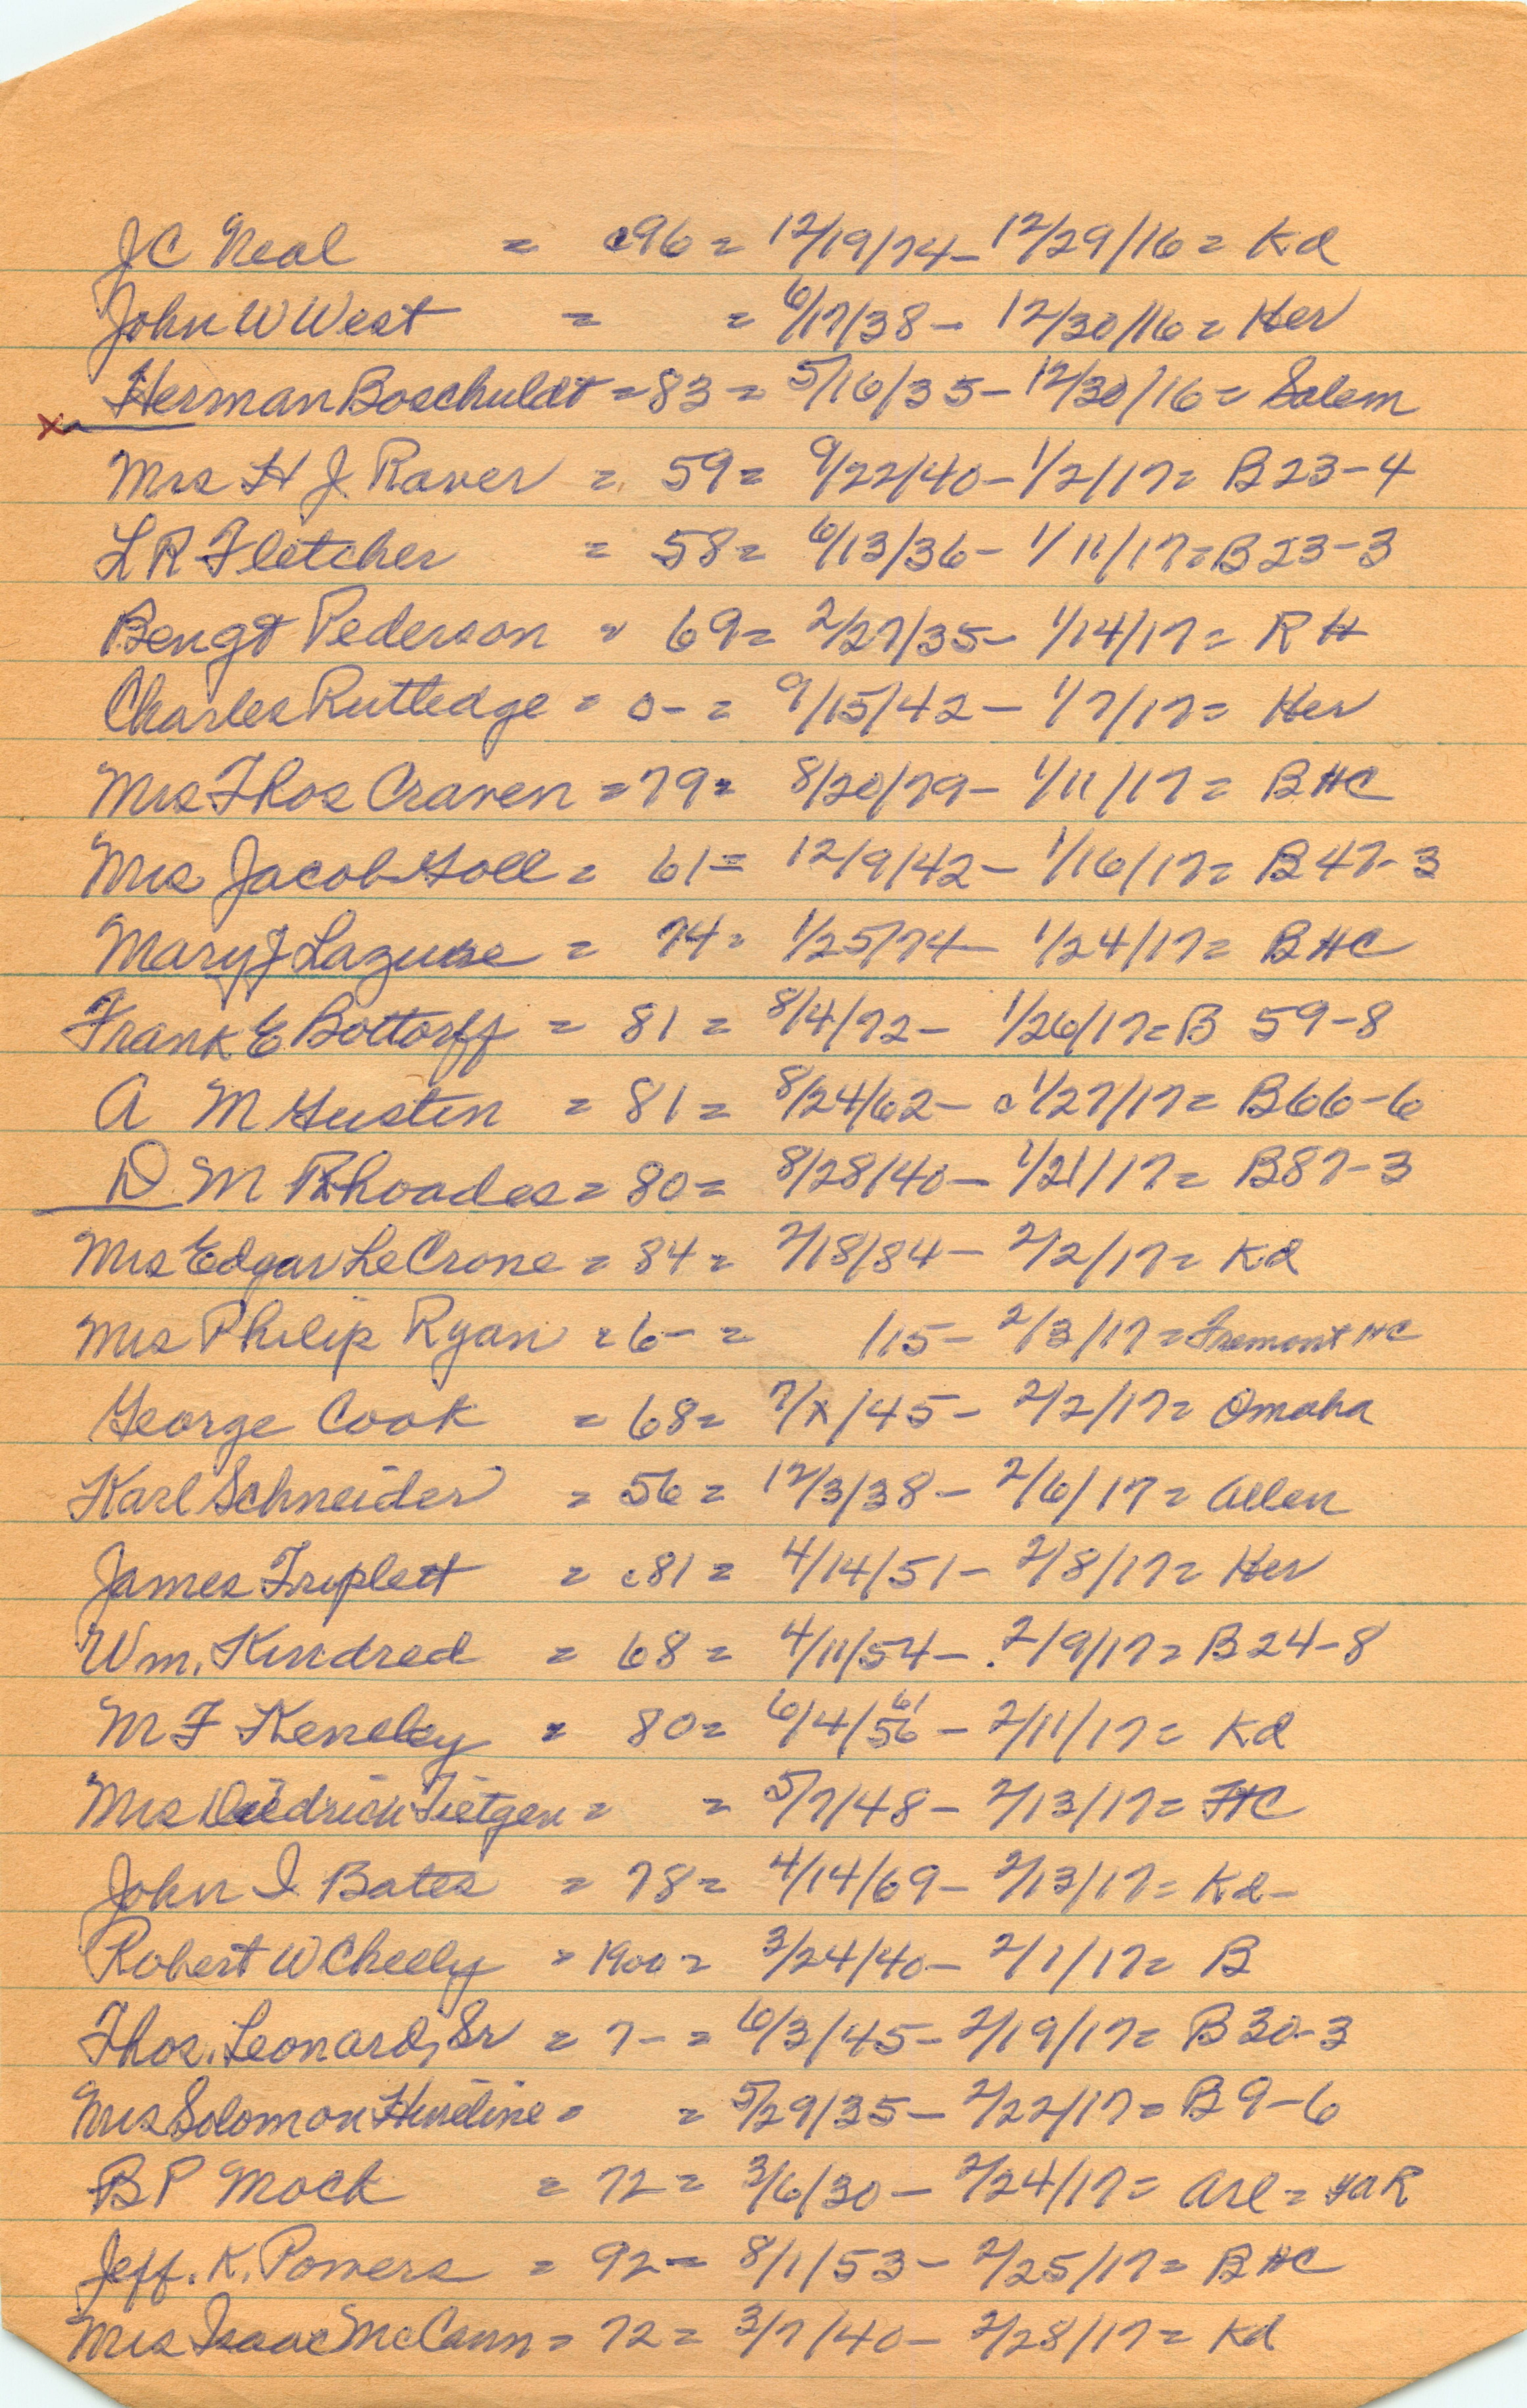 JC Neal = c96 = 12/19/74 - 12/29/16 = Kd
John W West = = 6/17/38 - 12/30/16 = Her
x Herman Boschuldt = 83 = 5/16/35 - 12/30/16 = Salem
Mrs H J Raver = 59 = 9/22/40 - 1/2/17 = B 23-4
L R Fletcher = 58 = 6/13/36 - 1/11/17 = B 23-3
Bengt Pederson = 69 = 2/27/35 - 1/14/17 = R H
Charles Rutledge = 0- = 9/15/42 - 1/7/17 = Her
Mrs Thos Craven = 79 = 8/20/79 - 1/11/17 = B HC
Mrs Jacob Goll = 61 = 12/9/42 - 1/16/17 = B 47-3
Mary J Lazure = 74 = 1/25/74 - 1/24/17 = B HC
Frank E Bottorff = 81 = 8/4/72 - 1/26/17 = B 59-8
A M Gustin = 81 = 8/24/62 - c 1/27/17 = B66-6
D. M Rhoades = 80 = 8/28/40 - 1/21/17 = B87-3
Mrs Edgar LeCrone = 84 = 7/18/84 - 2/2/17 = Kd
Mrs Philip Ryan = 6- = /15 - 2/3/17 = Fremont HC
George Cook = 68 = 7/x/45 - 2/2/17 = Omaha
Karl Schneider = 56 = 12/3/38 - 2/6/17 = Allen
James Triplett = c81 = 4/14/51 - 2/8/17 = Her
Wm. Kindred = 68 = 4/11/54 - 2/9/17 = B 24-8
M F Keneley = 80 = 6/4/56 61 - 2/11/17 = Kd
Mrs Diedrich Tietgen = = 5/7/48 - 2/13/17 = FHC
John I Bates = 78 = 4/14/69 - 2/13/17 = Kd -
Robert W Cheely = 1900 = 3/24/40 - 2/1/17 = B
Thos. Leonard, Sr = 7- = 6/3/45 - 2/19/17 = B 30-3
Mrs Solomon Hineline = = 5/29/35 - 2/22/17 = B 9-6
B P Mock = 72 = 3/6/30 - 2/24/17 = Arl = GaR
Jeff. K. Powers = 92 = 8/1/53 - 2/25/17 = B HC
Mrs Isaac McCann = 72 = 3/7/40 - 2/28/17 = Kd